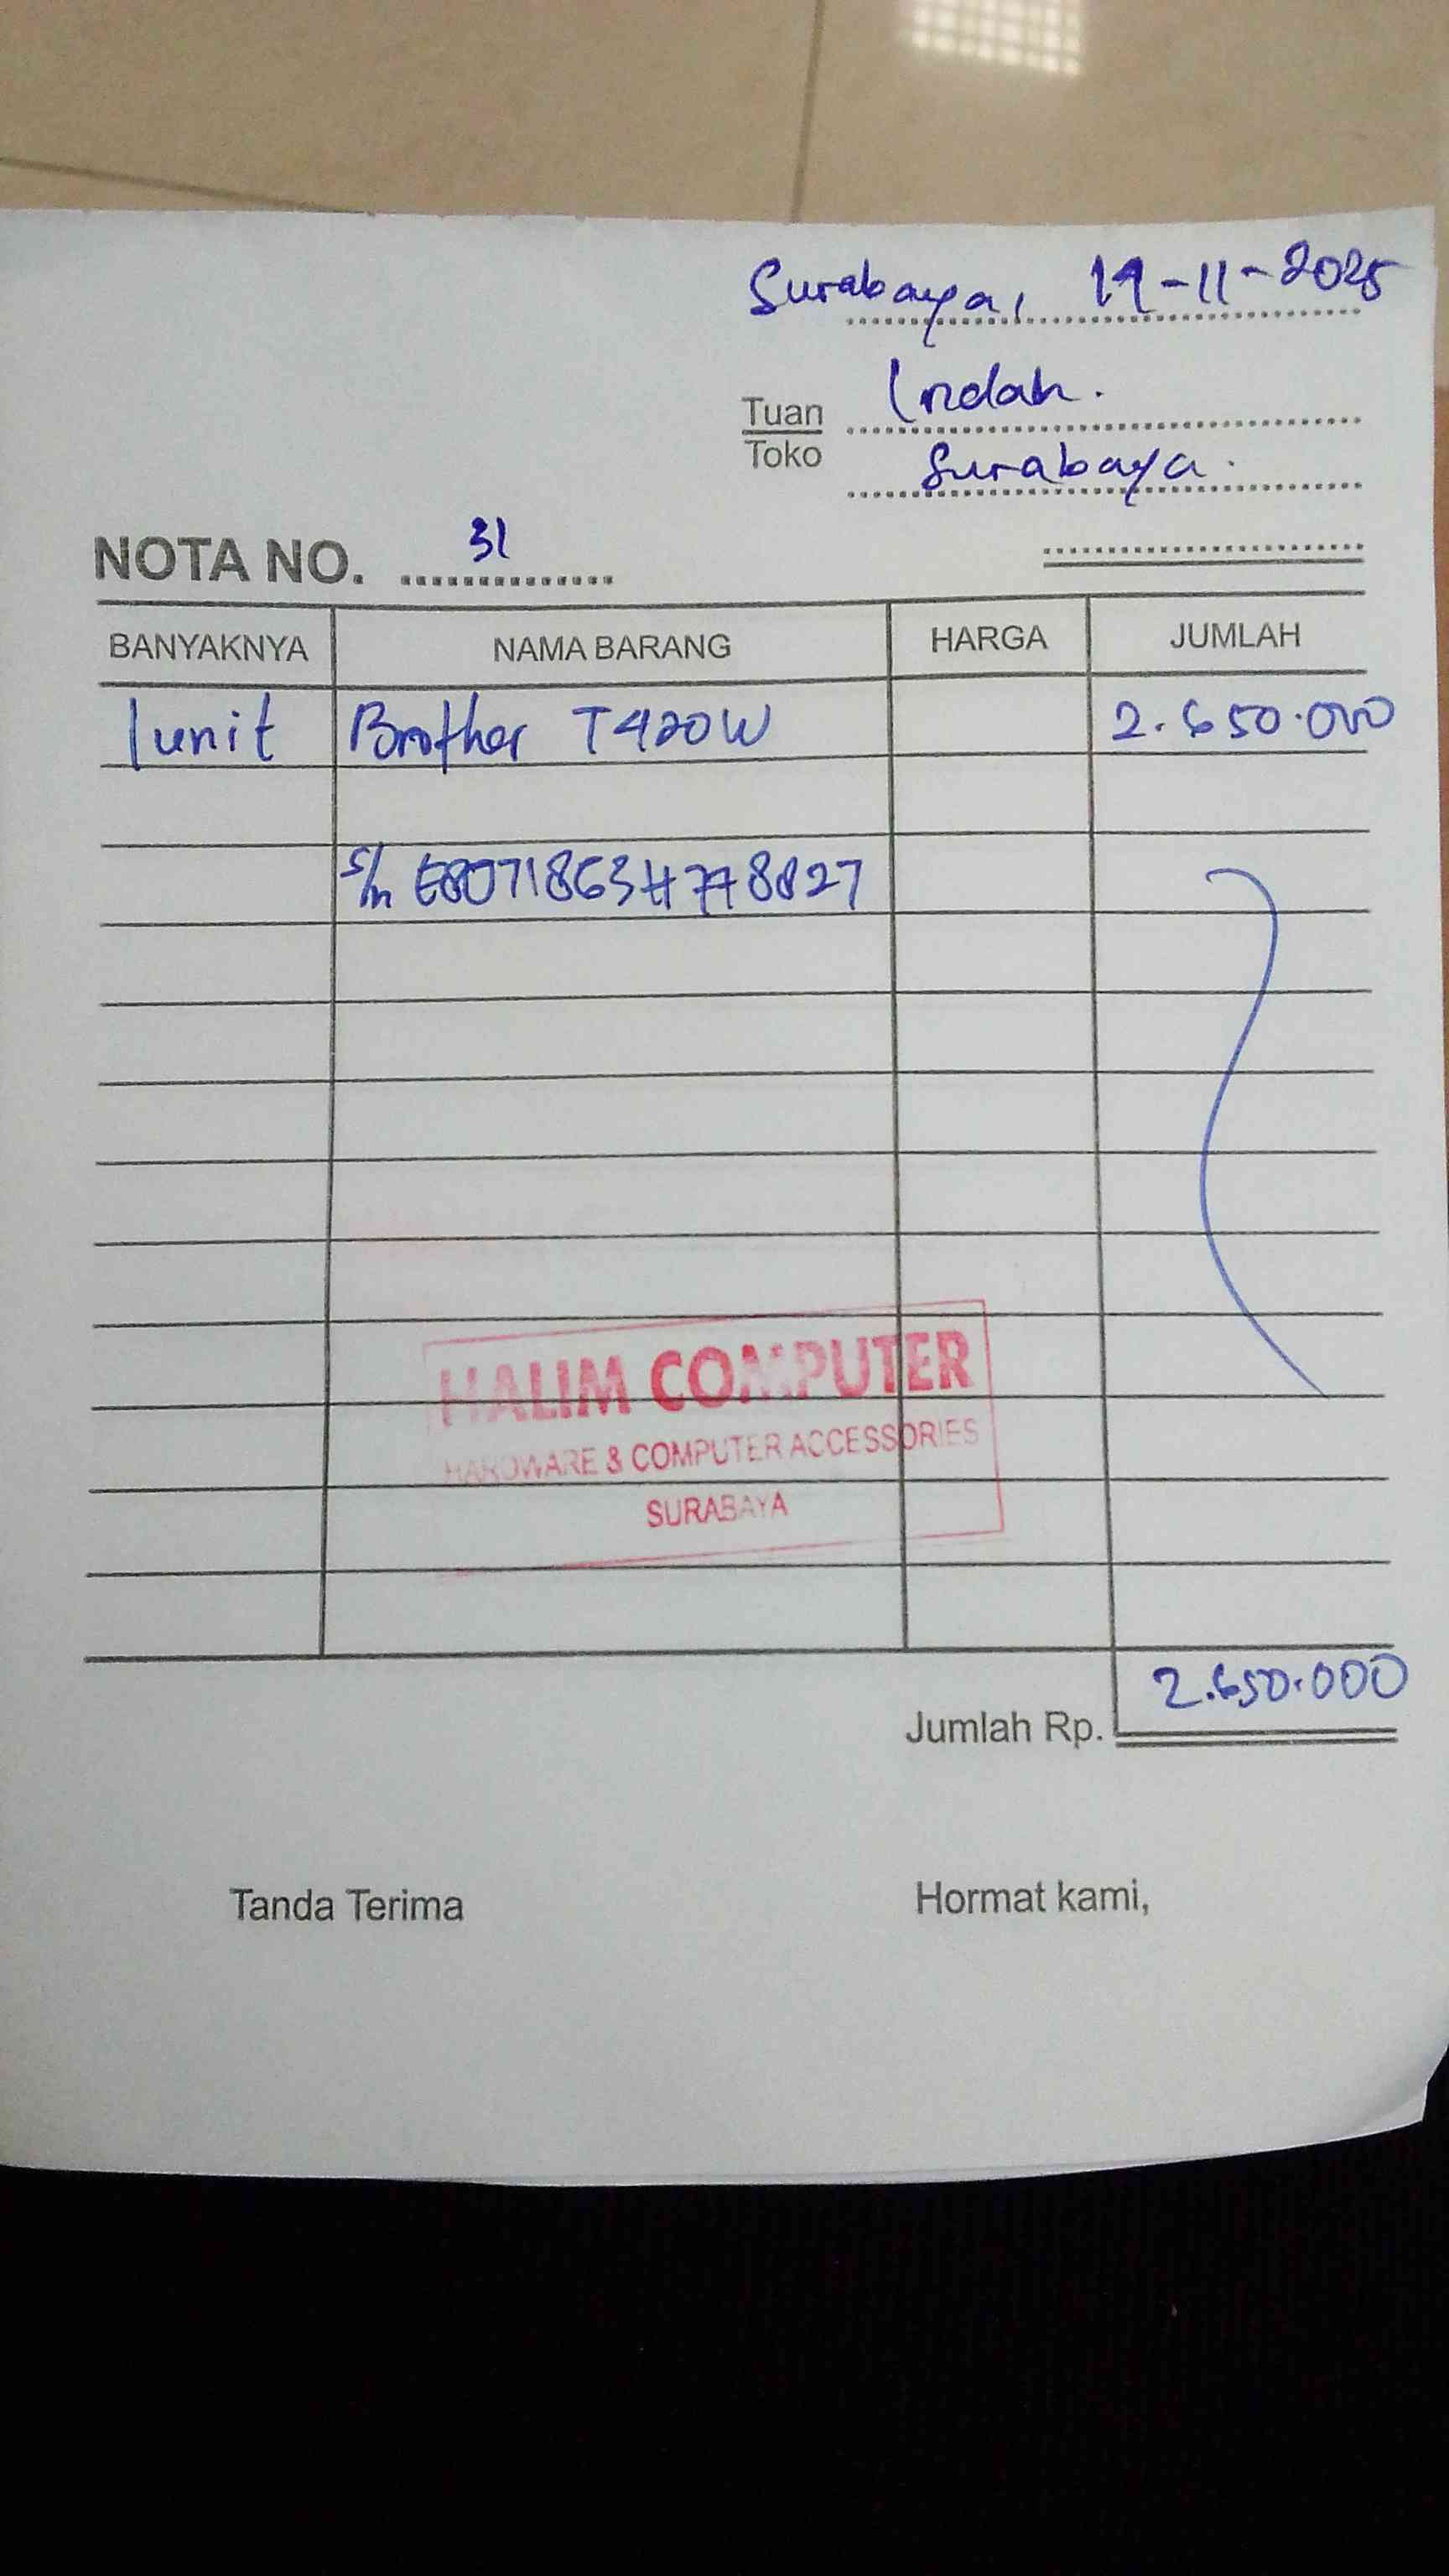 Surabaya, 19-11-2025
Tuan Indah.
Toko Surabaya.
NOTA NO. 31
BANYAKNYA NAMA BARANG HARGA JUMLAH
1 unit Brother T420W 2.650.000
S/n E80718634778827
HALIM COMPUTER
HARDWARE & COMPUTER ACCESSORIES
SURABAYA
Jumlah Rp. 2.650.000
Tanda Terima Hormat kami,